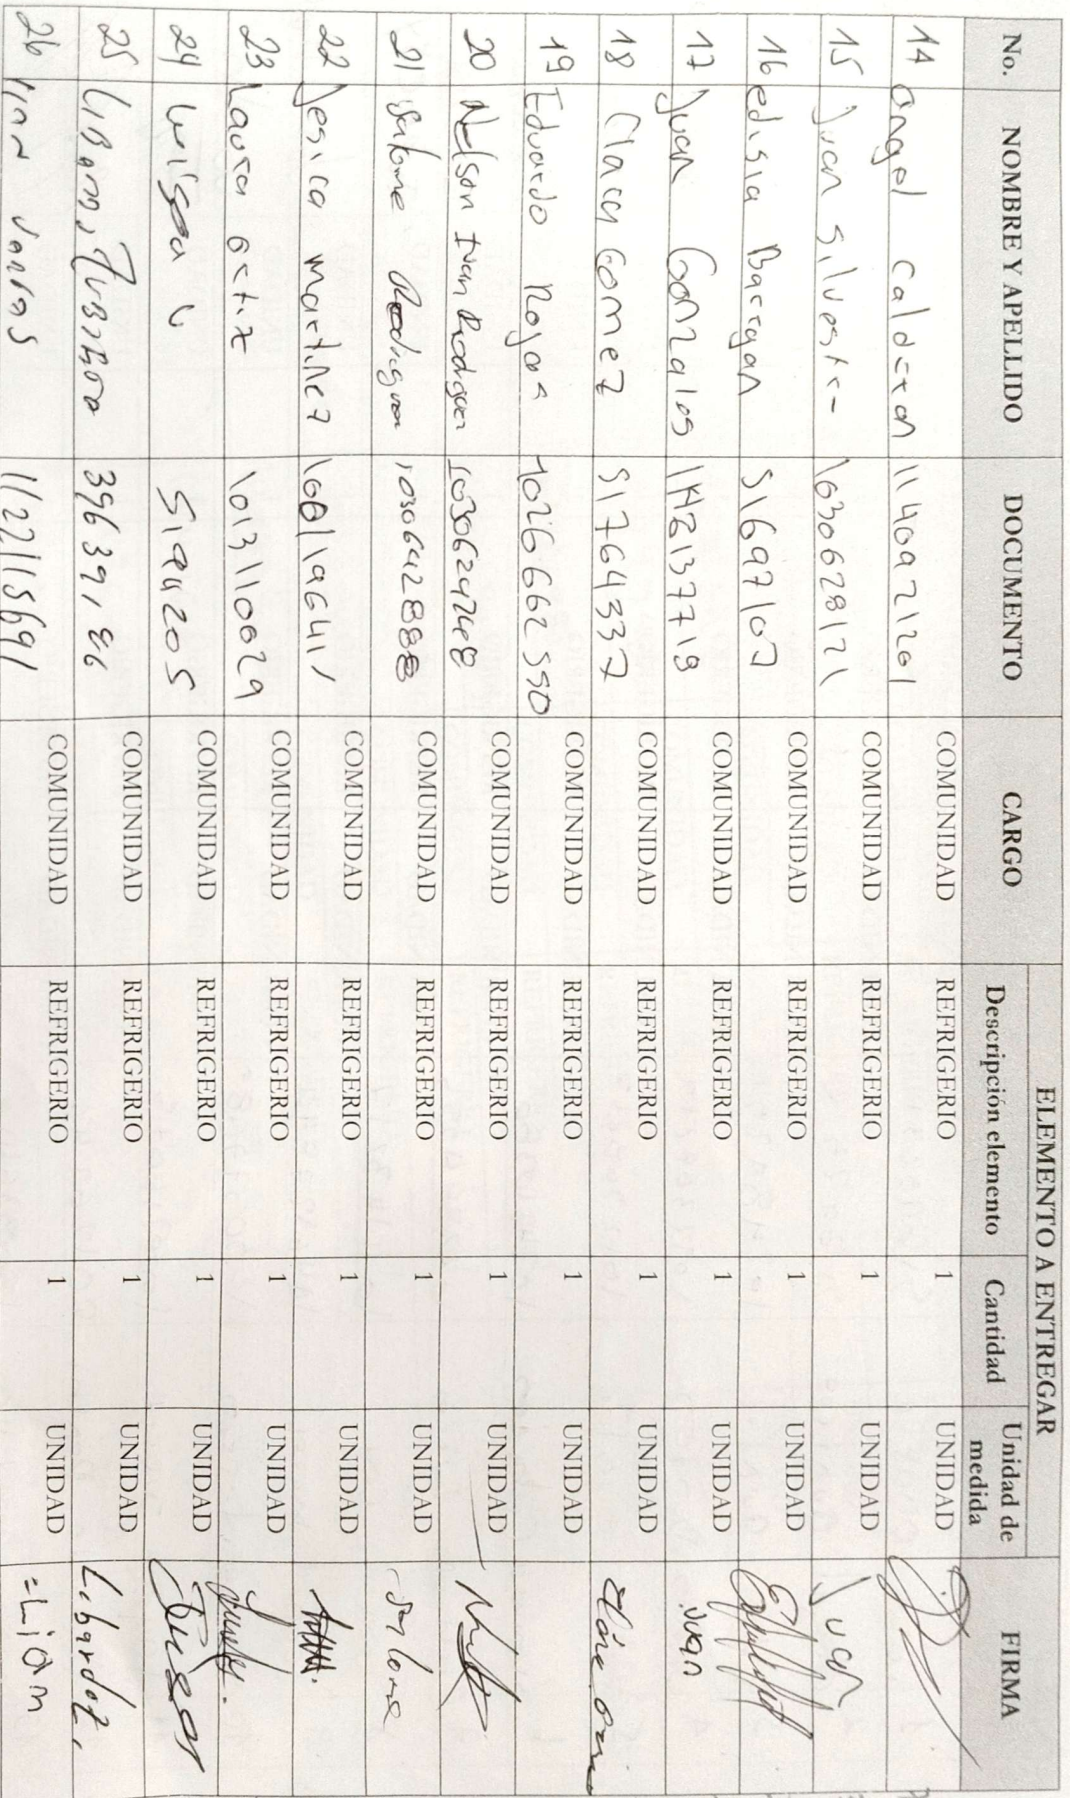 ELEMENTO A ENTREGAR
No. NOMBRE Y APELLIDO DOCUMENTO CARGO Descripción elemento Cantidad Unidad de medida FIRMA
14 angel calderon 1140921201 COMUNIDAD REFRIGERIO 1 UNIDAD
15 Juan silvestre 1030628121 COMUNIDAD REFRIGERIO 1 UNIDAD Juan
16 edisia Barragan 51697107 COMUNIDAD REFRIGERIO 1 UNIDAD
17 Juan Gonzales COMUNIDAD REFRIGERIO 1 UNIDAD Juan
18 Clara Gomez 51764337 COMUNIDAD REFRIGERIO 1 UNIDAD
19 Eduardo Rojas 1026662550 COMUNIDAD REFRIGERIO 1 UNIDAD
20 Nelson Ivan Rodriguez COMUNIDAD REFRIGERIO 1 UNIDAD
21 Salome Rodriguez COMUNIDAD REFRIGERIO 1 UNIDAD Salome
22 Jesica martinez COMUNIDAD REFRIGERIO 1 UNIDAD
23 Laura ortiz 1013110029 COMUNIDAD REFRIGERIO 1 UNIDAD
24 COMUNIDAD REFRIGERIO 1 UNIDAD
25 39639186 COMUNIDAD REFRIGERIO 1 UNIDAD
26 COMUNIDAD REFRIGERIO 1 UNIDAD Liam